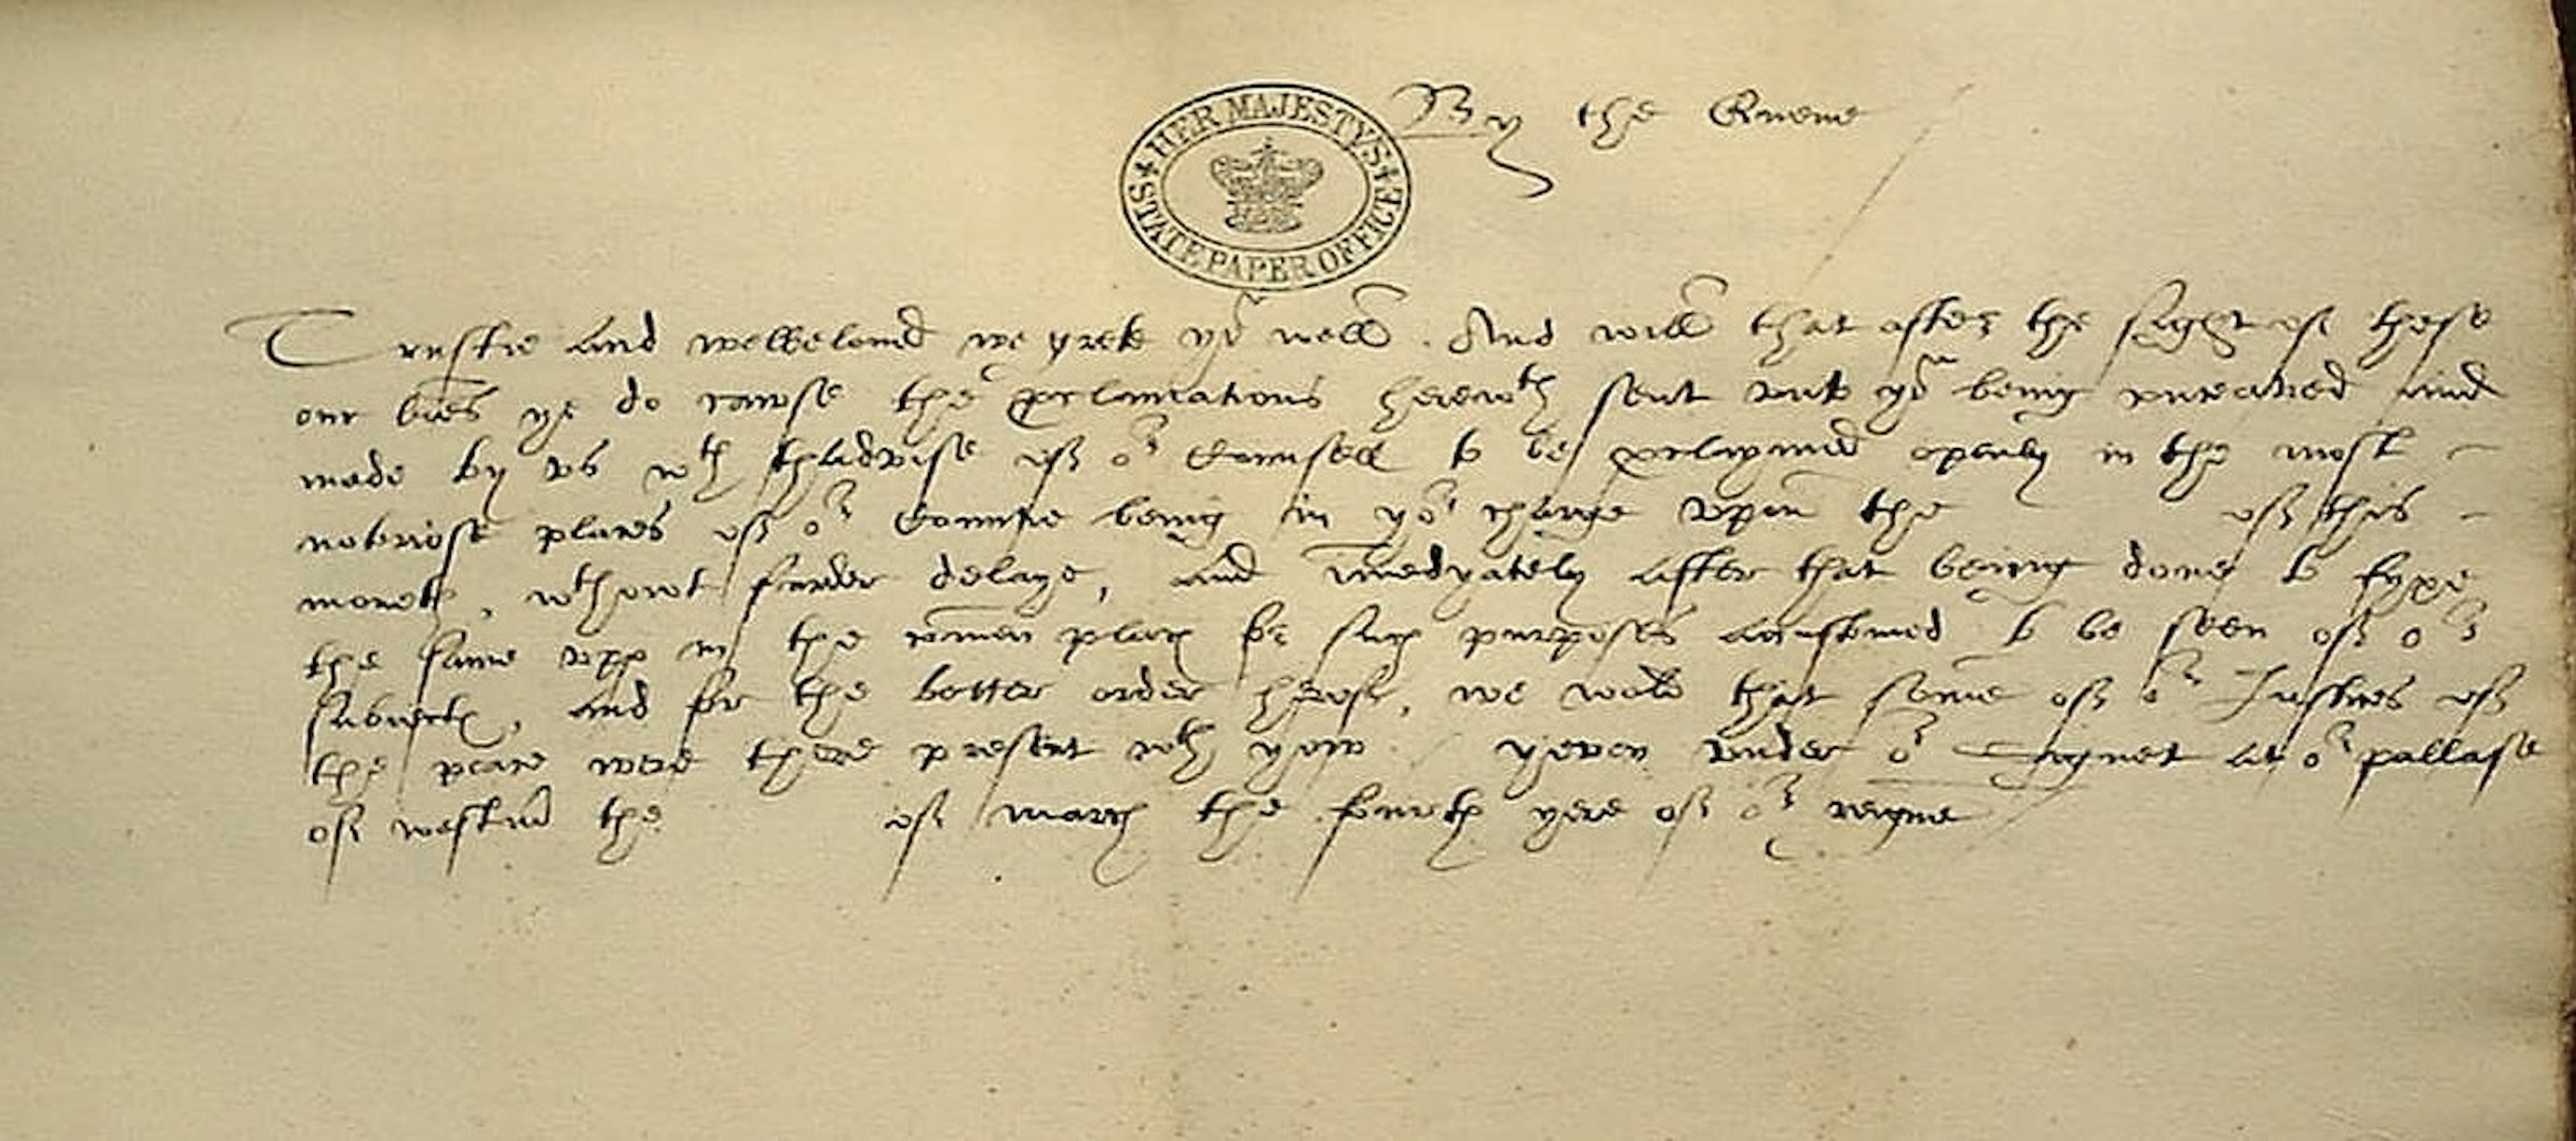 HER MAJESTYS STATE PAPER OFFICE
By the Quene
Trustie and welbeloued we grete yow well. And will that after the sight of these
our lres ye do cawse the proclamations herewth sent vnto yow being vnced and
made by vs wth thadvise of or Counsell to be proclaymed openly in the most
notoriose places of or Countie being in yor charge vpon the of this
moneth, wthowt furder delaye, and Imedyately after that being done to fyxe
the same vpp in the comen place for such purposes accustomed to be seen of or
subiects, and for the better order herof, we wold that some of or Justices of
the peace were there present wth yow yeven vnder or Signet at or pallase
of westmr the of march the fourth yere of or reigne